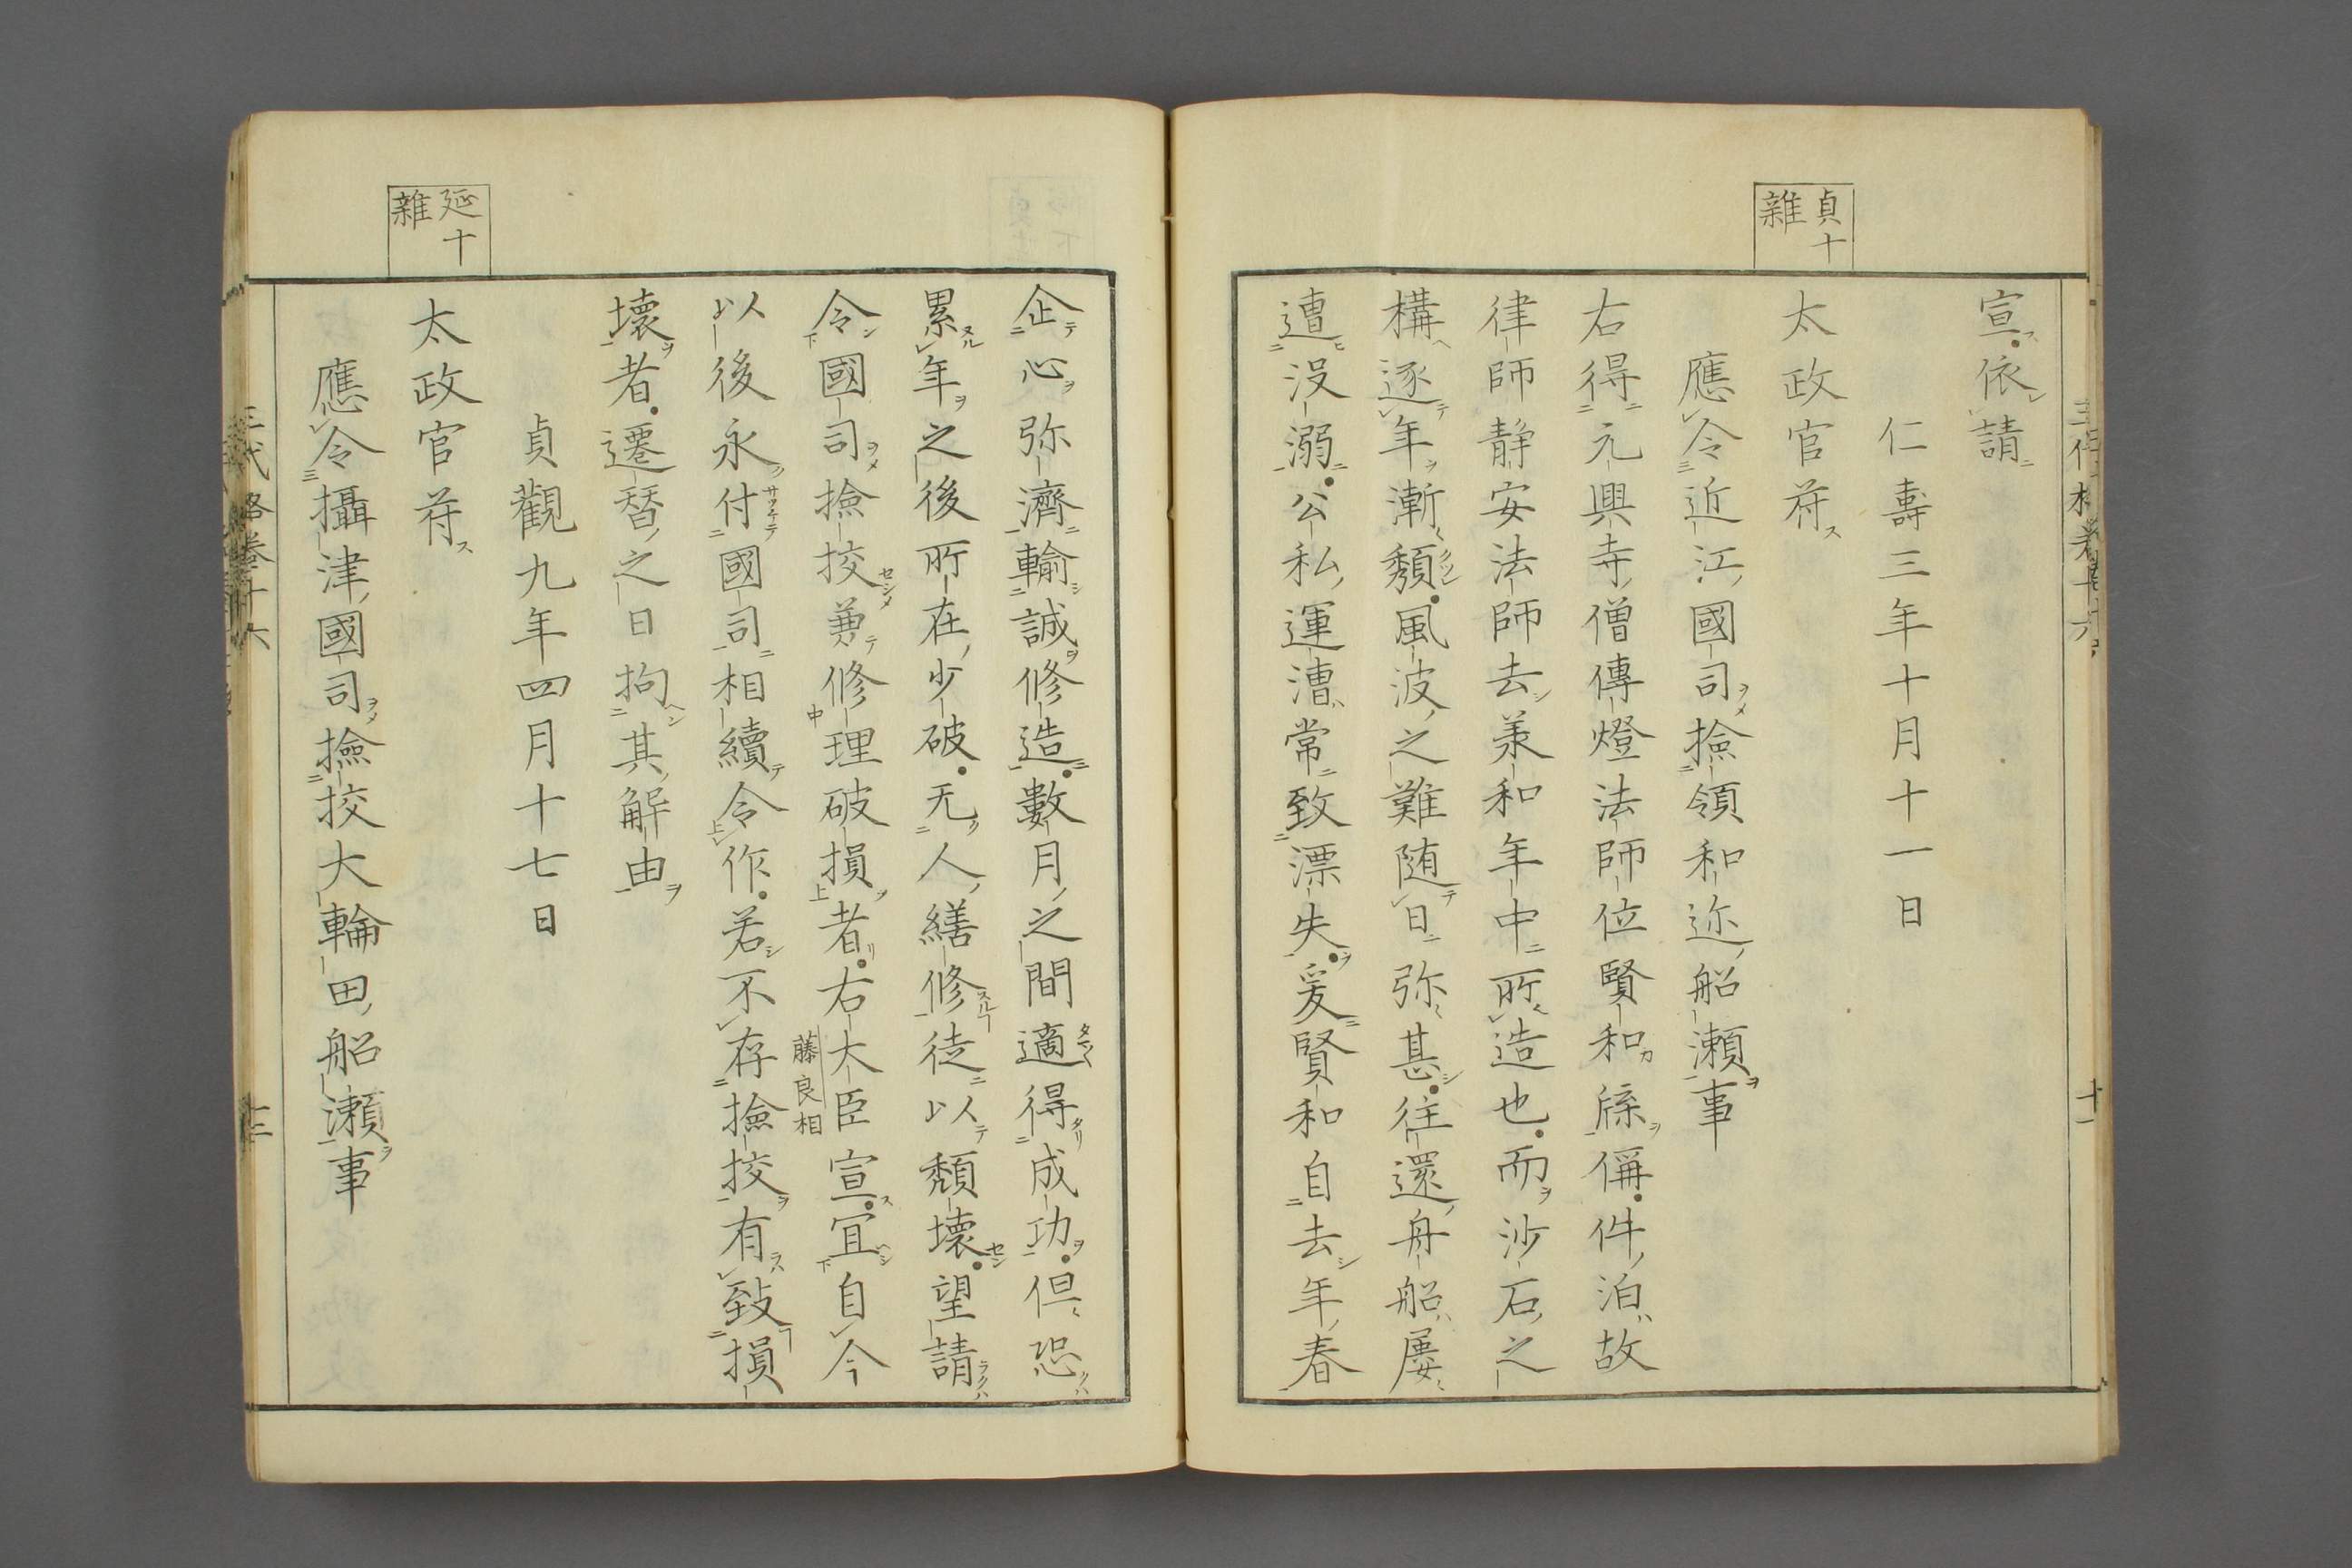 貞十
雜
宣依請
仁壽三年十月十一日
太政官苻
應令近江國司撿領和迩船瀬事
右得元興寺僧傳燈法師位賢和牒偁件泊故
律師静安法師去兼和年中所造也而沙石之
構逐年漸頽風波之難随日弥甚往還舟船屢
遭没溺公私運漕常致漂失爰賢和自去年春
企心弥濟輸誠修造數月之間適得成功但恐
累年之後所在少破无人繕修徒以頽壞望請
令國司撿挍兼修理破損者右大臣宣宜自今
藤良相
以後永付國司相續令作若不存撿挍有致損
壞者遷替之日拘其解由
貞觀九年四月十七日
延十
雜
太政官苻
應令攝津國司撿挍大輪田船瀬事